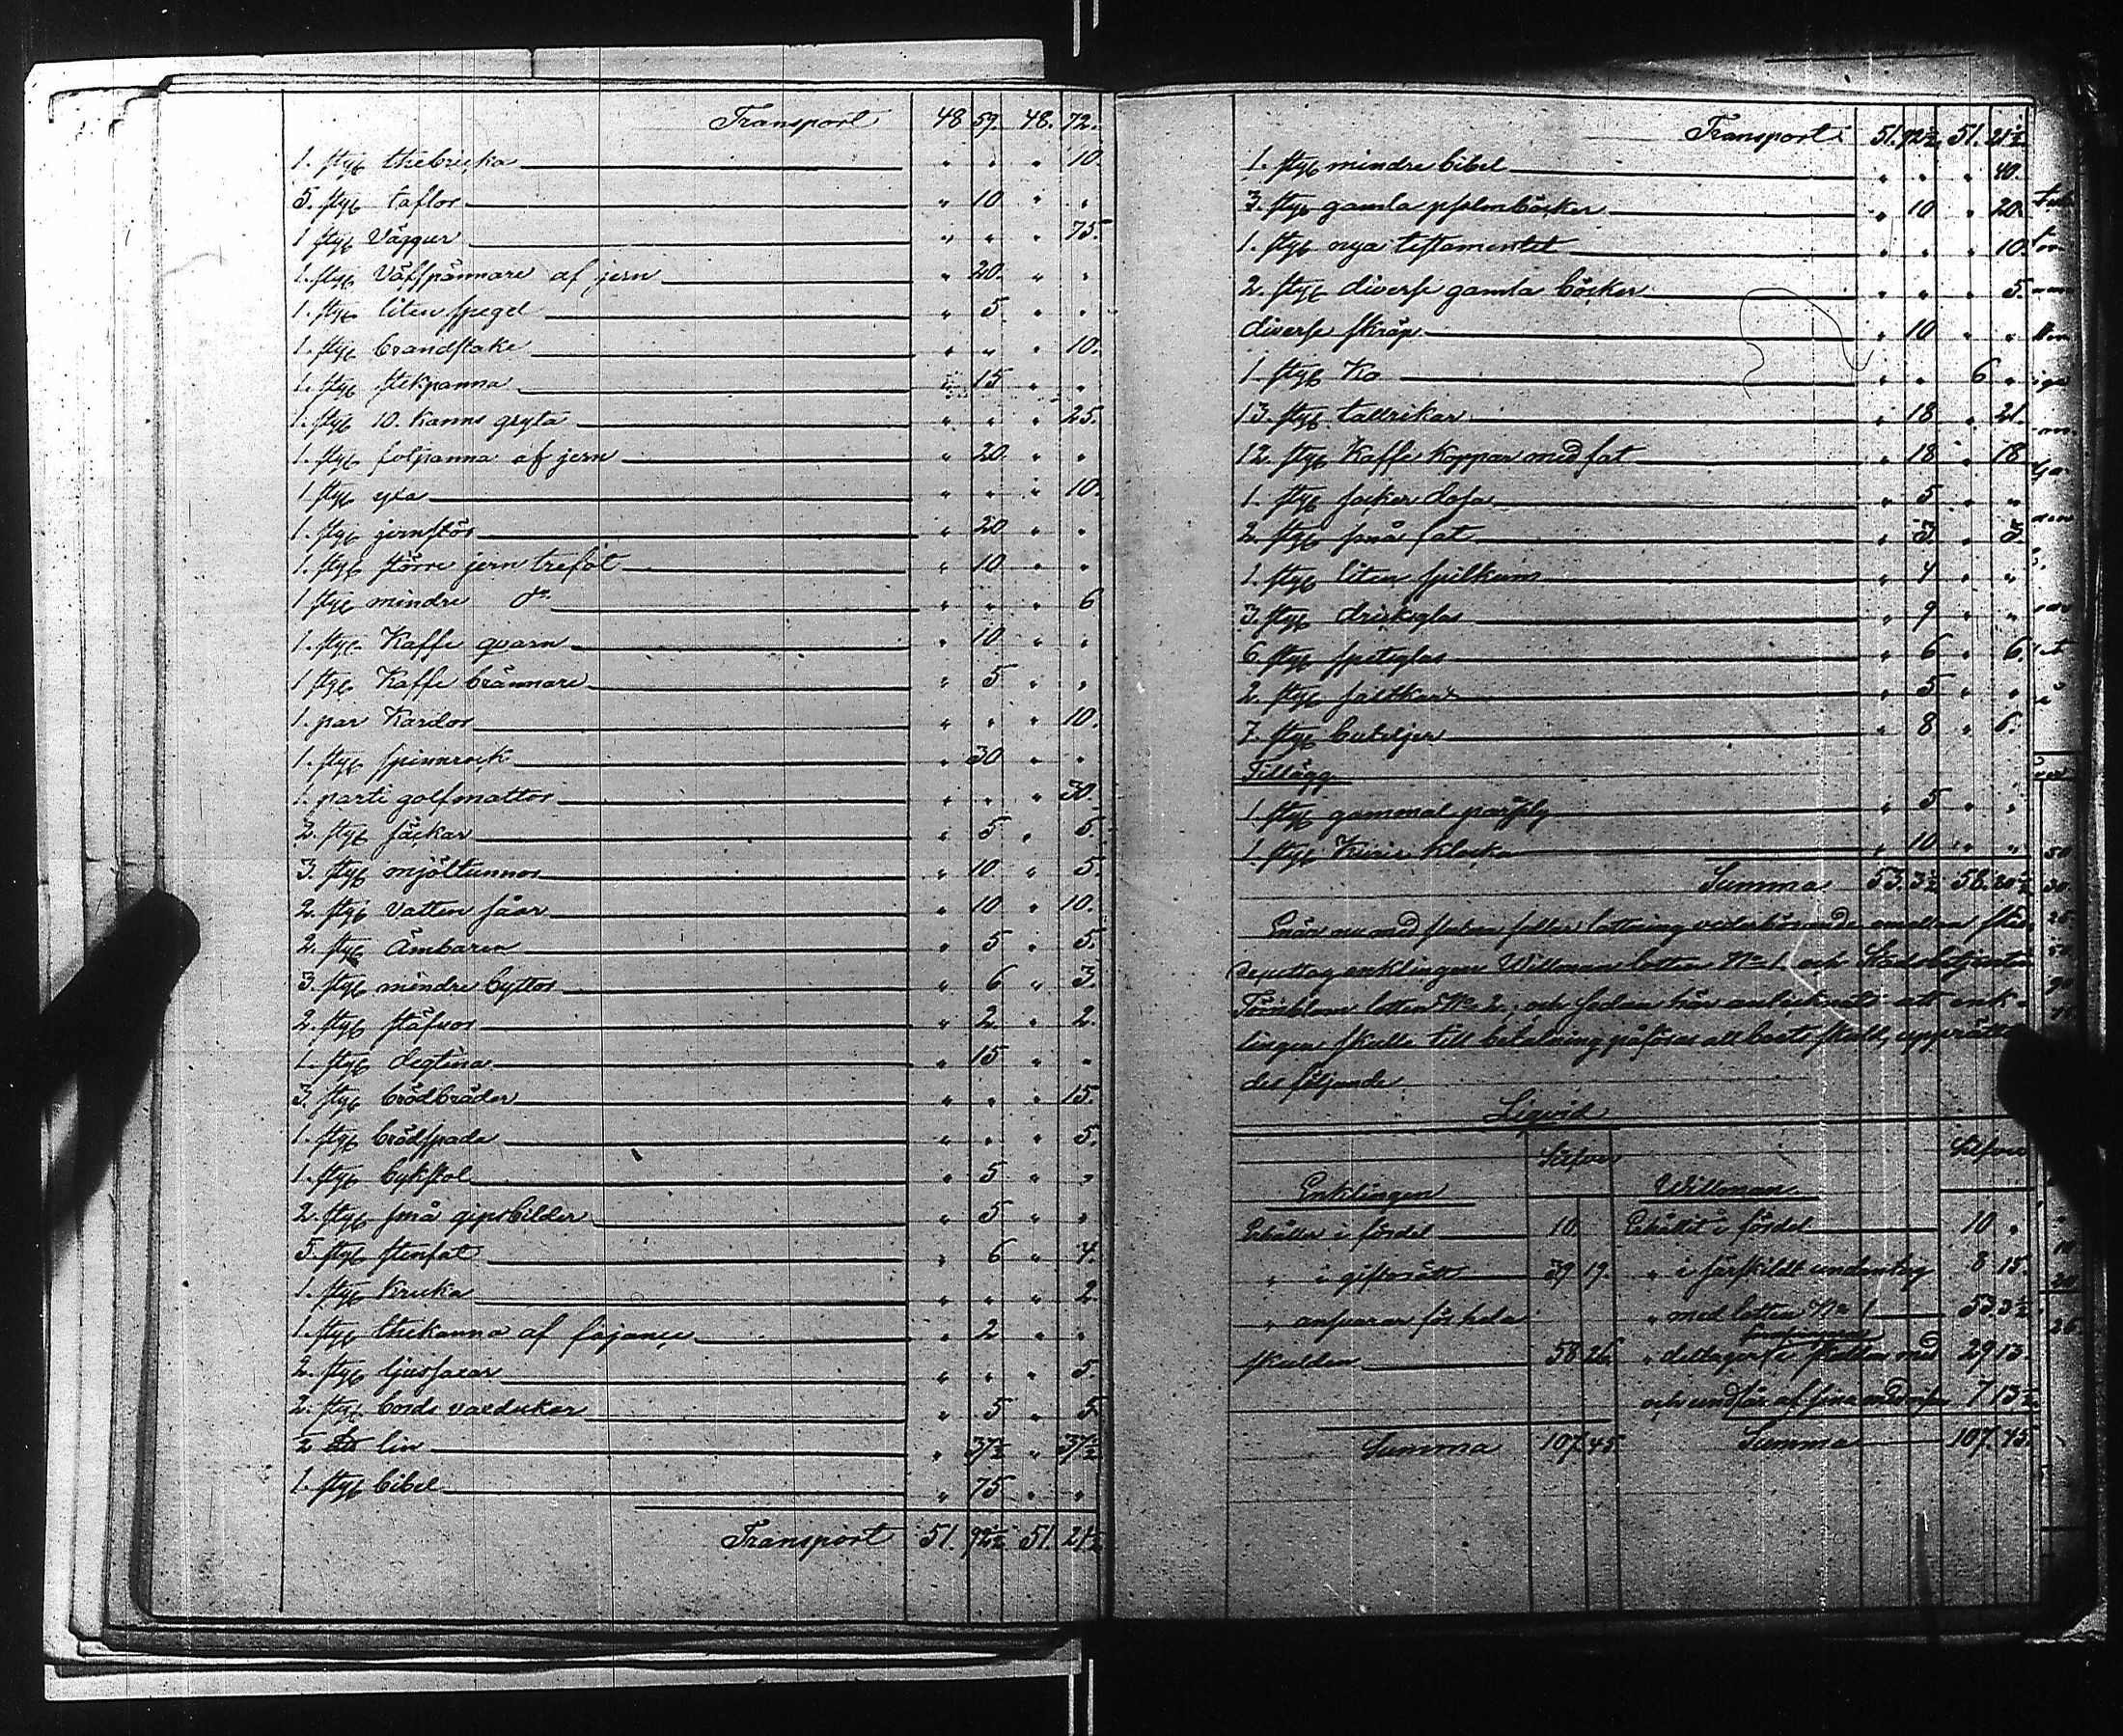 Transport 48 59. 48. 72.
1. styg thebricka " " " 10.
5. styg taflor " 10 " "
1 styg Väggur " " " 75.
1. styg Väfspännare af jern " 20. " "
1. styg liten spegel " 5 " "
1. styg brandstake " " " 10.
1. styg stekpanna " 15 " "
1. styg 10. kanns gryta " " " 25.
1. styg folpanna af jern " 20 " "
1 styg yxa " " " 10.
1. styg jernstör " 20 " "
1. styg större jern trefot " 10 " "
1 styg mindre do " " " 6
1. styg Kaffe qvarn " 10 " "
1 styg Kaffe brännare " 5 " "
1. par Kardor " " " 10.
1. styg spinnrock " 30 " "
1. parti golfmattor " " " 30.
2. styg säckar " 5 " 5.
3. styg mjöltunnor " 10 " 5.
2. styg vatten såar " 10 " 10.
2. styg Ämbaren " 5 " 5.
3. styg mindre byttor " 6 " 3.
2. styg stäfvor " 2 " 2.
1. styg degtina " 15 " "
3. styg brödbräder " " " 15.
1. styg brödspada " " " 5.
1. styg bykstol " 5 " "
2. styg små gipsbilder " 5 " "
5. styg stenfat " 6 " 4.
1. styg Kruka " " " 2
1. styg thekanna af fajance " 2 " "
2. styg ljussaxar " " " 5.
2. styg bords vaxdukar " 5 " 5
½ lin " 37½ " 37½
1. styg bibel " 75 " "
Transport 51. 92½ 51. 21½
Transport. 51. 92½ 51. 21½
1. styg mindre bibel " " " 40.
3. styg gamla psalmböcker " 10 " 20.
1. styg nya testamentet " " " 10.
2. styg diverse gamla böcker " " " 5.
diverse skräp " 10 " "
1. styg Ko " " 6 "
13. styg tallrikar " 18 " 21.
12. styg Kaffe koppar med fat " 18 " 18
1. styg socker dosa " 5 " "
2. styg små fat " 3 " 3.
1. styg liten spilkum " 4 " "
3. styg dricksglas " 9 " "
6 styg spetsglas " 6 " 6.
2. styg saltkar " 5 " "
7. styg buteljer " 8 " 6.
Tillägg
1 styg gammal " 5 " "
1. styg klocka " 10 " "
Summa 53. 3½ 58. 20½
Enär nu med skedde lottning vederbörande emellan
enklingen Willman lotten No 1 och
Törnblom lotten No 2, och sedan han att enk-
lingen skulle till betalning påföras all boets skuld, upprätta-
des följande
Liqvid
Silfver Silfver
Enklingen Willman
Erhåller i fördel 10. Erhållit i fördel 10 "
" i giftorätt 39 19. " i särskildt undantag 8 15.
" ansvarar för hela " med lotten No 1 53. 3½
skulden 58 26. " deltager i skulden med 29 13.
och undfår af sina 7 13½
Summa 107. 45. Summa 107. 45.